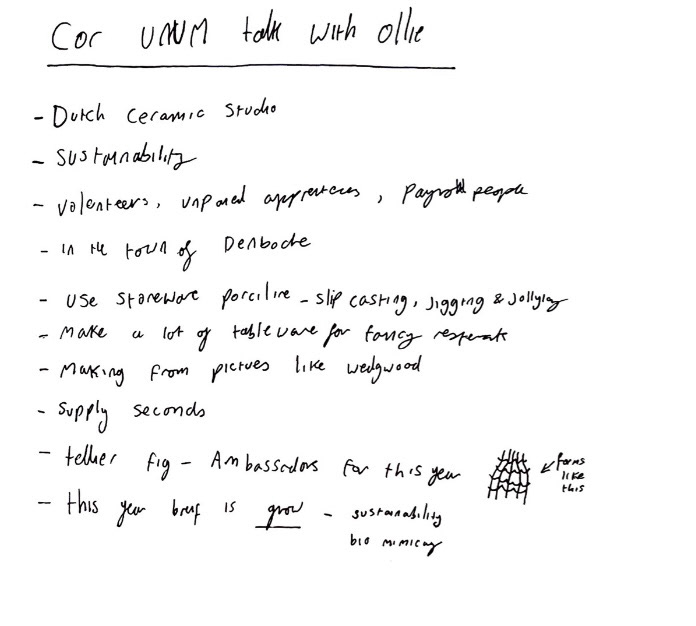 Cor UNUM talk with ollie
- Dutch Ceramic Studio
- Sustainability
- Volenteers, unpaied apprentices, Payroll people
- in the town of Denboche
- Use stoneware porciline - slip casting, Jigging & Jollying
- Make a lot of tableware for fancy
- Making from pictues like wedgwood
- Supply seconds
- fig - Ambassadors for this year
forms
like
this
- this year brief is grow - sustainability
bio mimicay